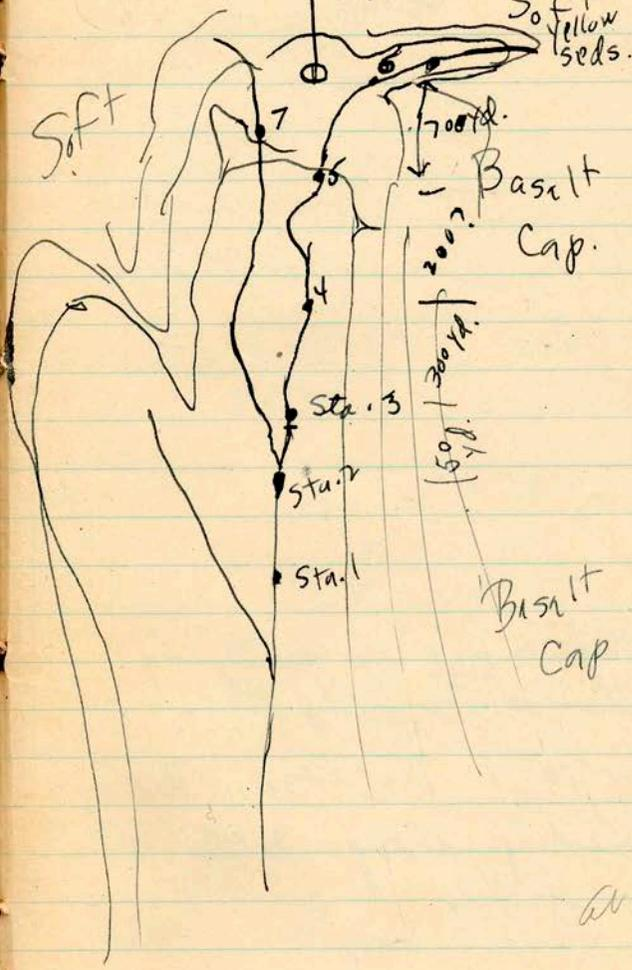 Soft
Yellow
seds.
Soft
7
6
700 yd.
5
Basalt
Cap.
200?
4
300 yd.
Sta. 3
50 yd.
Sta. 2
Sta. 1
Basalt
Cap